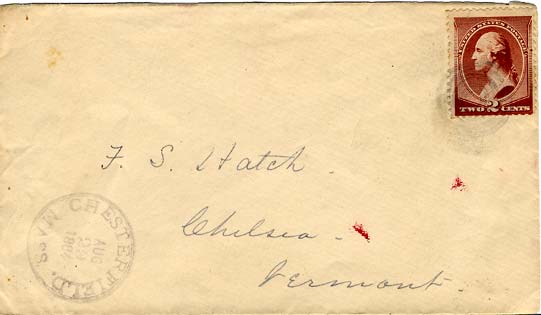 UNITED STATES POSTAGE
2
TWO CENTS
F. S. Hatch.
Chelsea.
Vermont.
CHESTERFIELD. MASS.
AUG